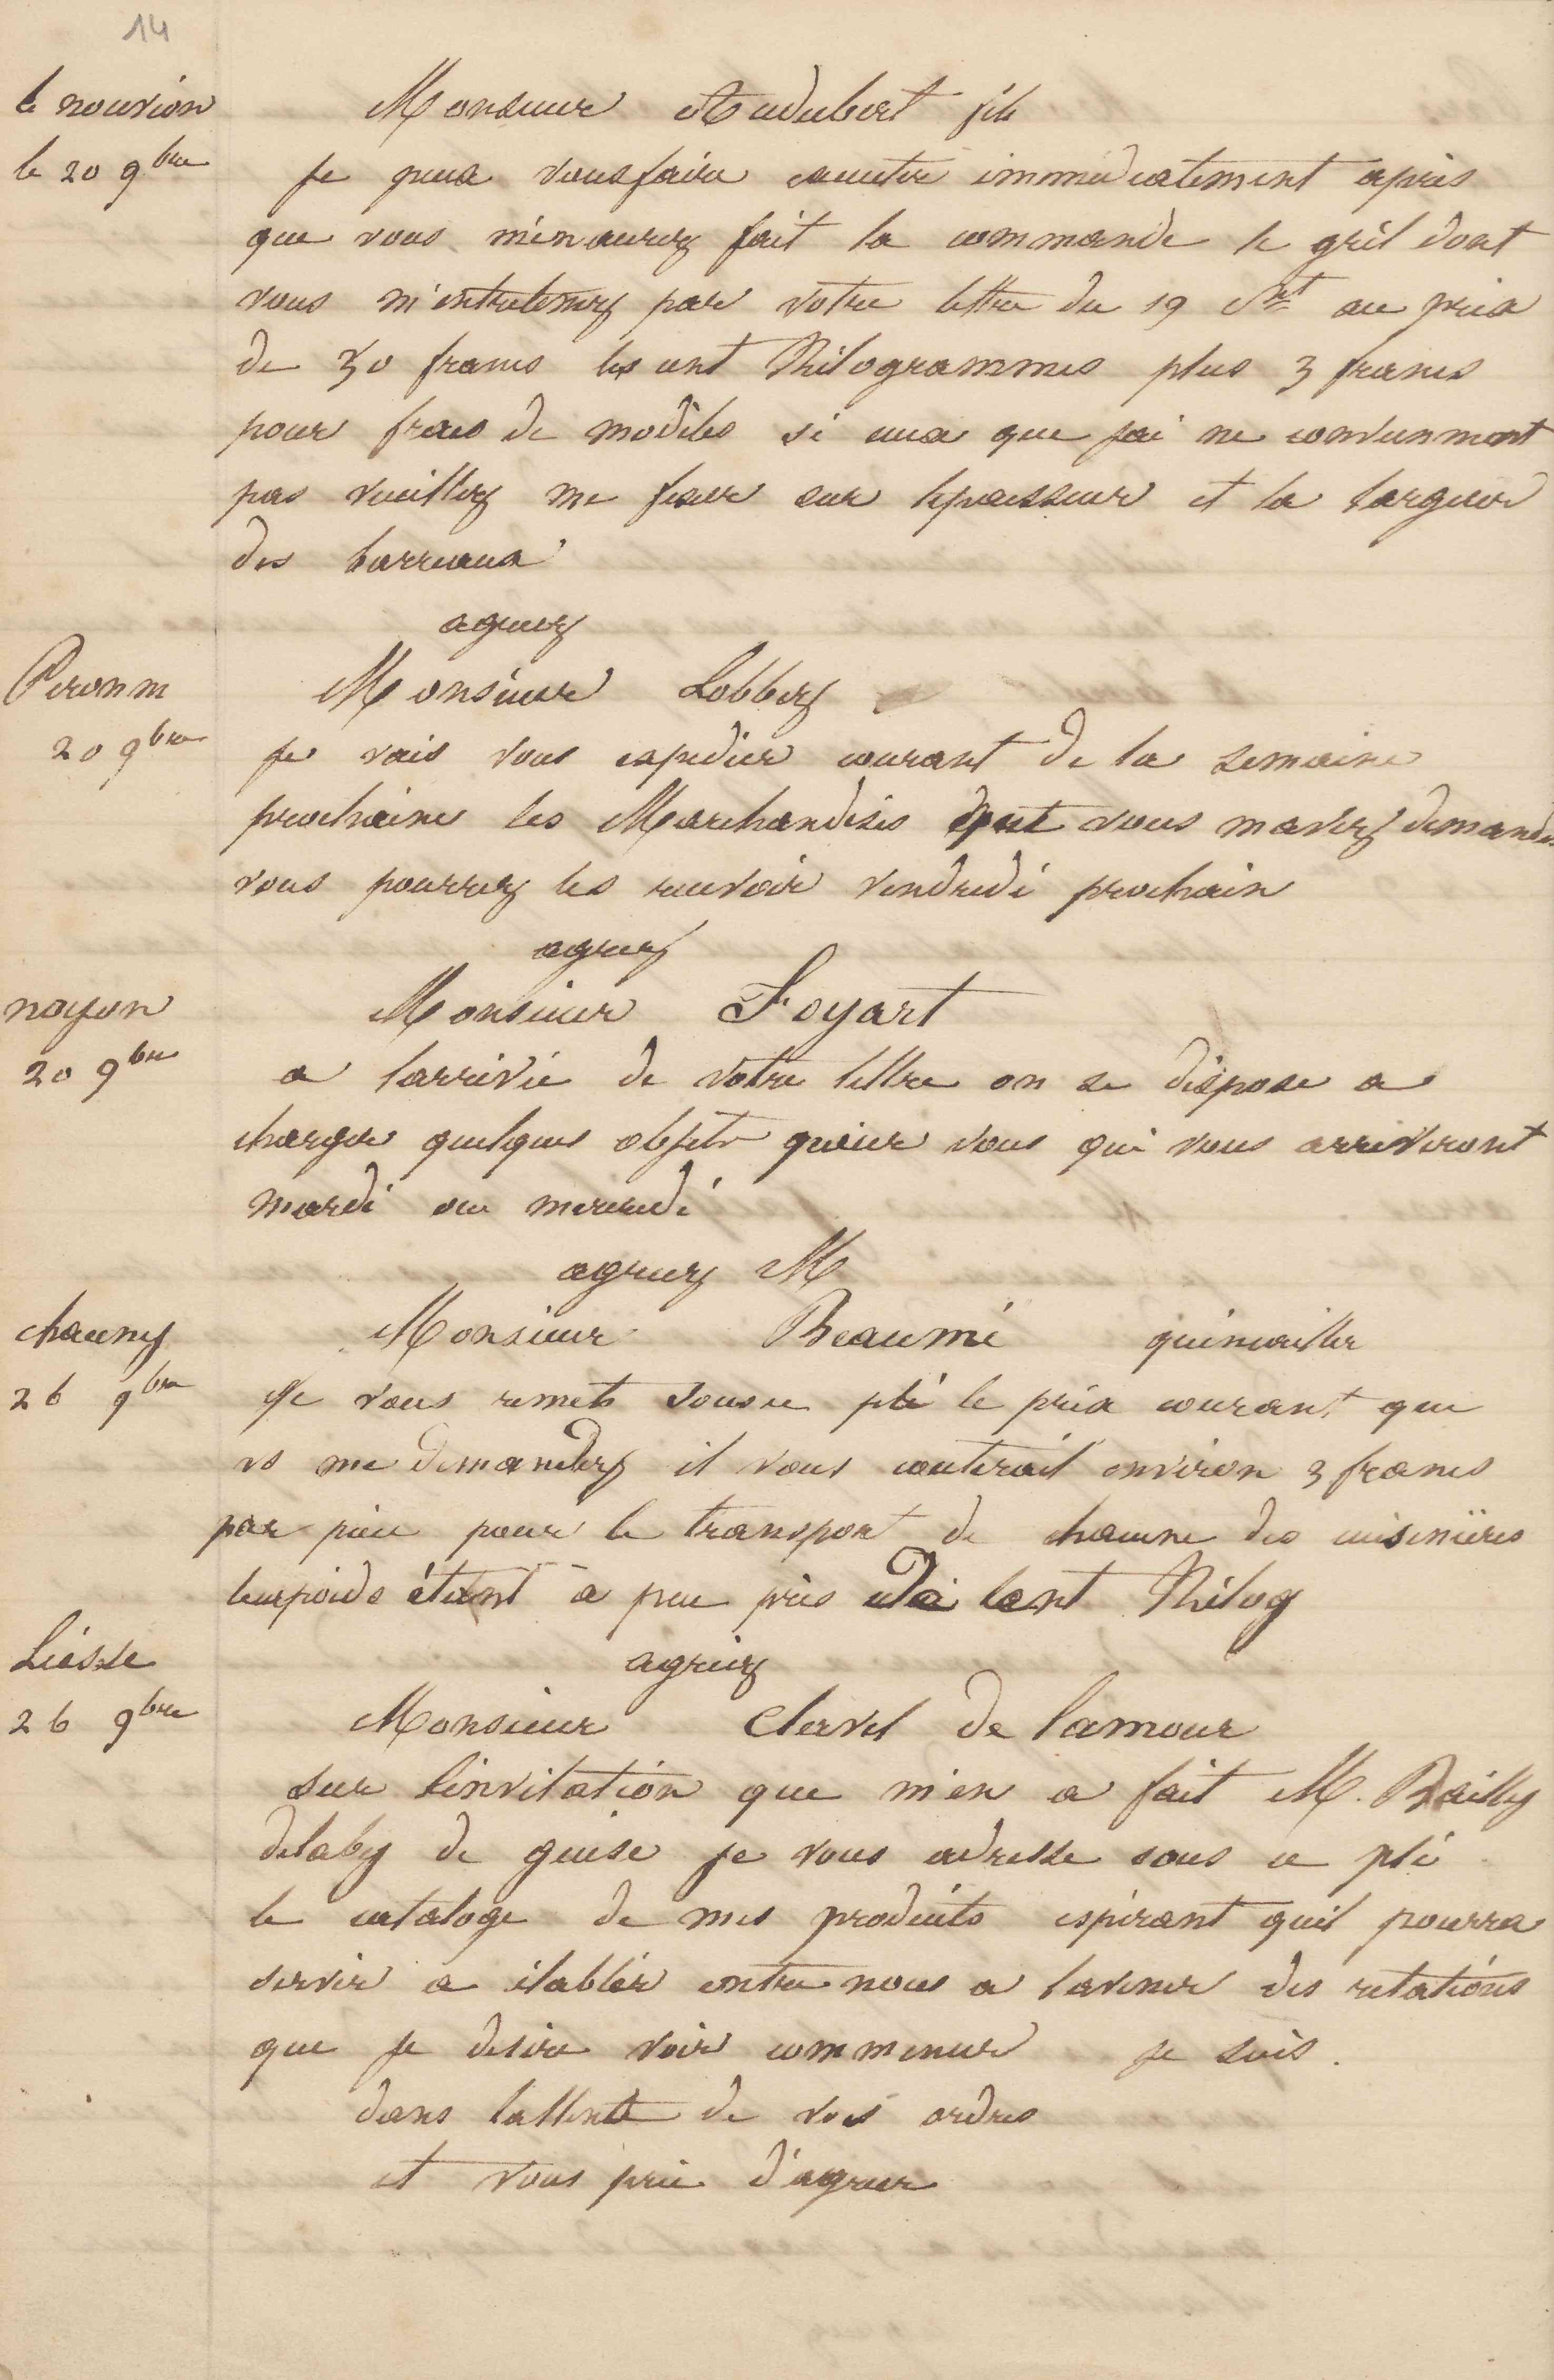 14
le nouvion
le 20 9bre
Monsieur Audubert fils
Je peux vous faire executer immediatement apres
que vous m'en aurez fait la commande le gril dont
vous m'entretenez par votre lettre du 19 Ct au prix
de 50 francs les cent Kilogrammes plus 3 francs
pour frais de modeles si ceux que jai ne conviennment
pas veuillez me fixer sur lepaisseur et la largeur
des barreaux
agreez
Peronne
20 9bre
Monsieur Lobbez
Je vais vous expedier courant de la semaine
prochaine les Marchandises vous mavez demandes
vous pourrez les recevoir vendredi prochain
agreez
noyon
20 9bre
Monsieur Foyart
a larrivée de votre lettre on se dispose a
charger quelques objets vous qui vous arriveront
mardi ou mercredi
agreez M
chauny
26 9bre
Monsieur Beaumé quincailler
Je vous remets sous ce pli le prix courant que
vs me demandez il vous couterait environ 3 francs
par piece pour le transport de chacune des cuisinieres
leur poids étant à peu près de cent Kilog
agréez
Liesse
26 9bre
Monsieur Clervel De lamour
sur linvitation que m'en a fait M. Bailly
delaby de guise je vous adresse sous ce pli
le cataloge de mes produits espérant quil pourra
servir a établir entre nous a lavenir des relations
que je desire voir commencer je suis.
dans lattente de vos ordres
et vous prie d'agreer